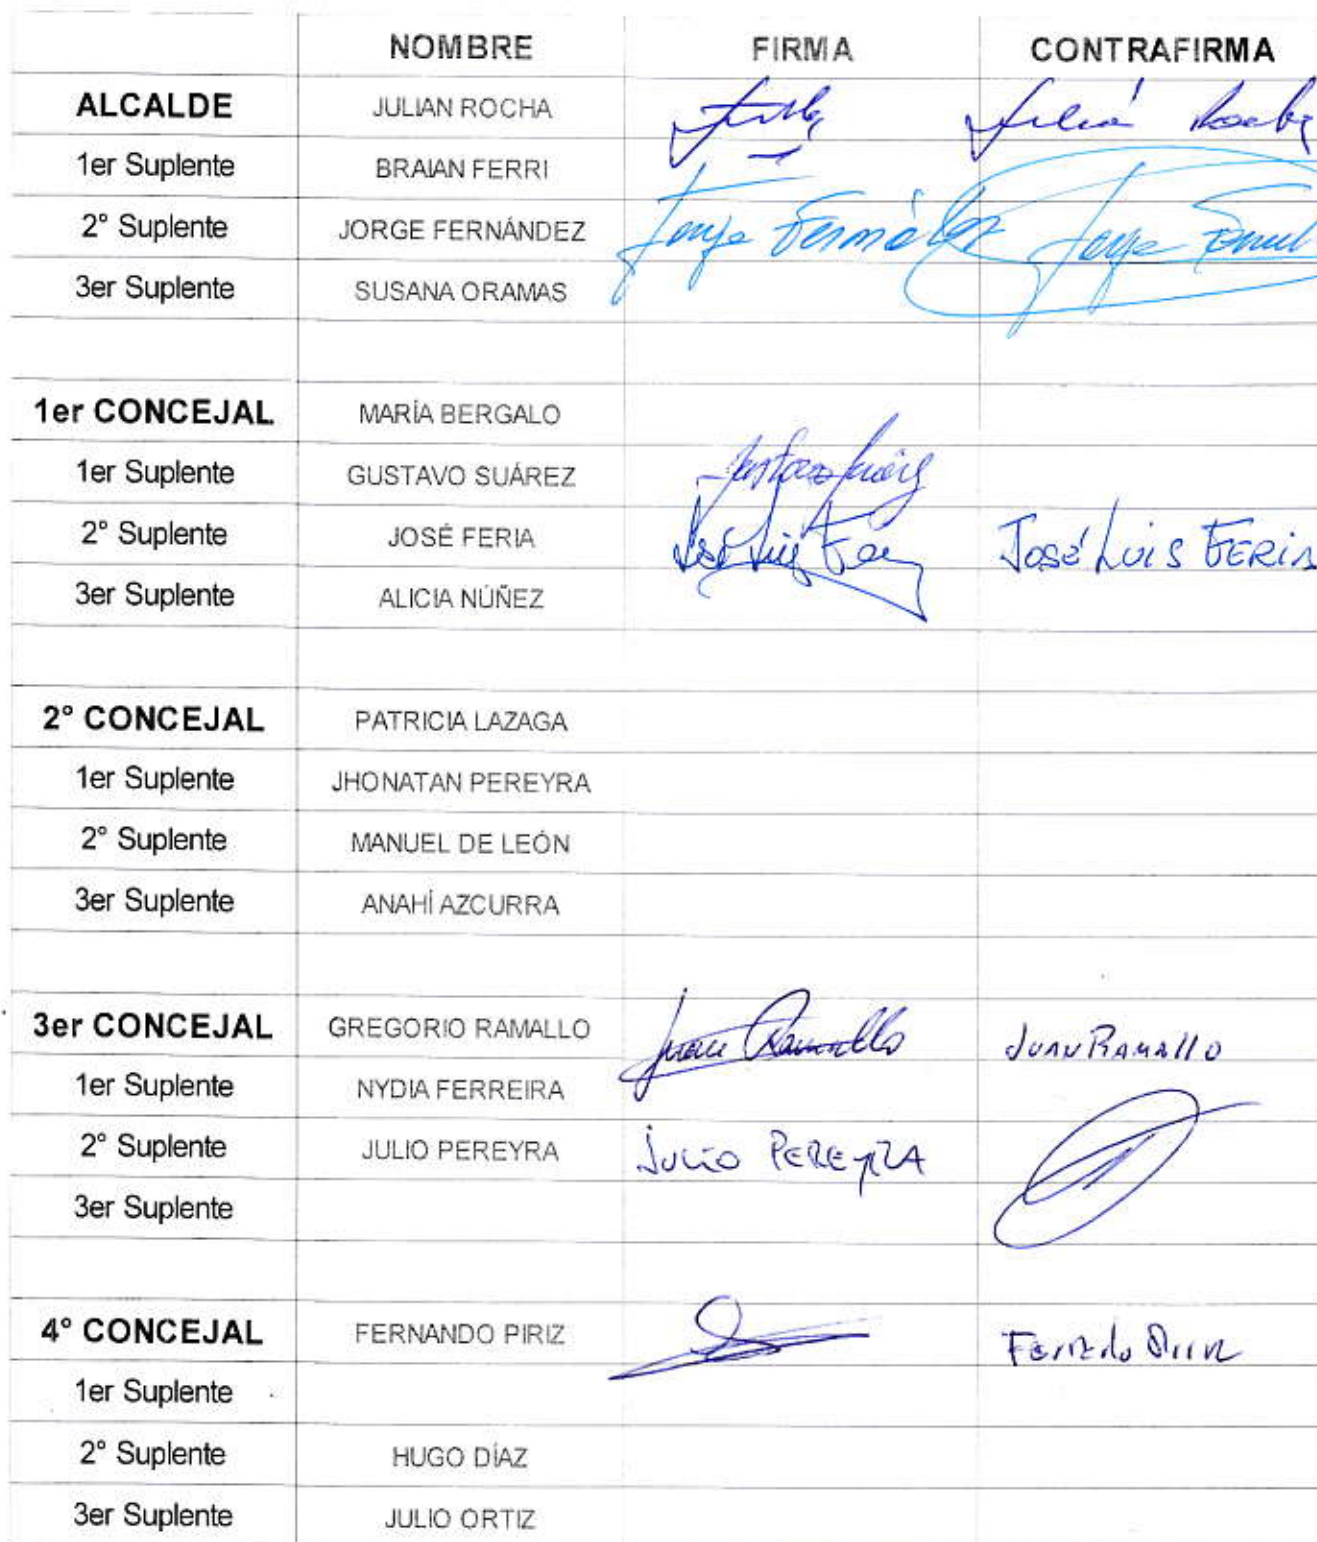 NOMBRE FIRMA CONTRAFIRMA
ALCALDE JULIAN ROCHA Julián Rocha
1er Suplente BRAIAN FERRI
2° Suplente JORGE FERNÁNDEZ Jorge Fernández Jorge
3er Suplente SUSANA ORAMAS
1er CONCEJAL MARÍA BERGALO
1er Suplente GUSTAVO SUÁREZ Gustavo Suárez
2° Suplente JOSÉ FERIA José Luis José Luis FERIA
3er Suplente ALICIA NÚÑEZ
2° CONCEJAL PATRICIA LAZAGA
1er Suplente JHONATAN PEREYRA
2° Suplente MANUEL DE LEÓN
3er Suplente ANAHÍ AZCURRA
3er CONCEJAL GREGORIO RAMALLO Juan Ramallo JUAN RAMALLO
1er Suplente NYDIA FERREIRA
2° Suplente JULIO PEREYRA JULIO PEREYRA
3er Suplente
4° CONCEJAL FERNANDO PIRIZ
1er Suplente
2° Suplente HUGO DÍAZ
3er Suplente JULIO ORTIZ